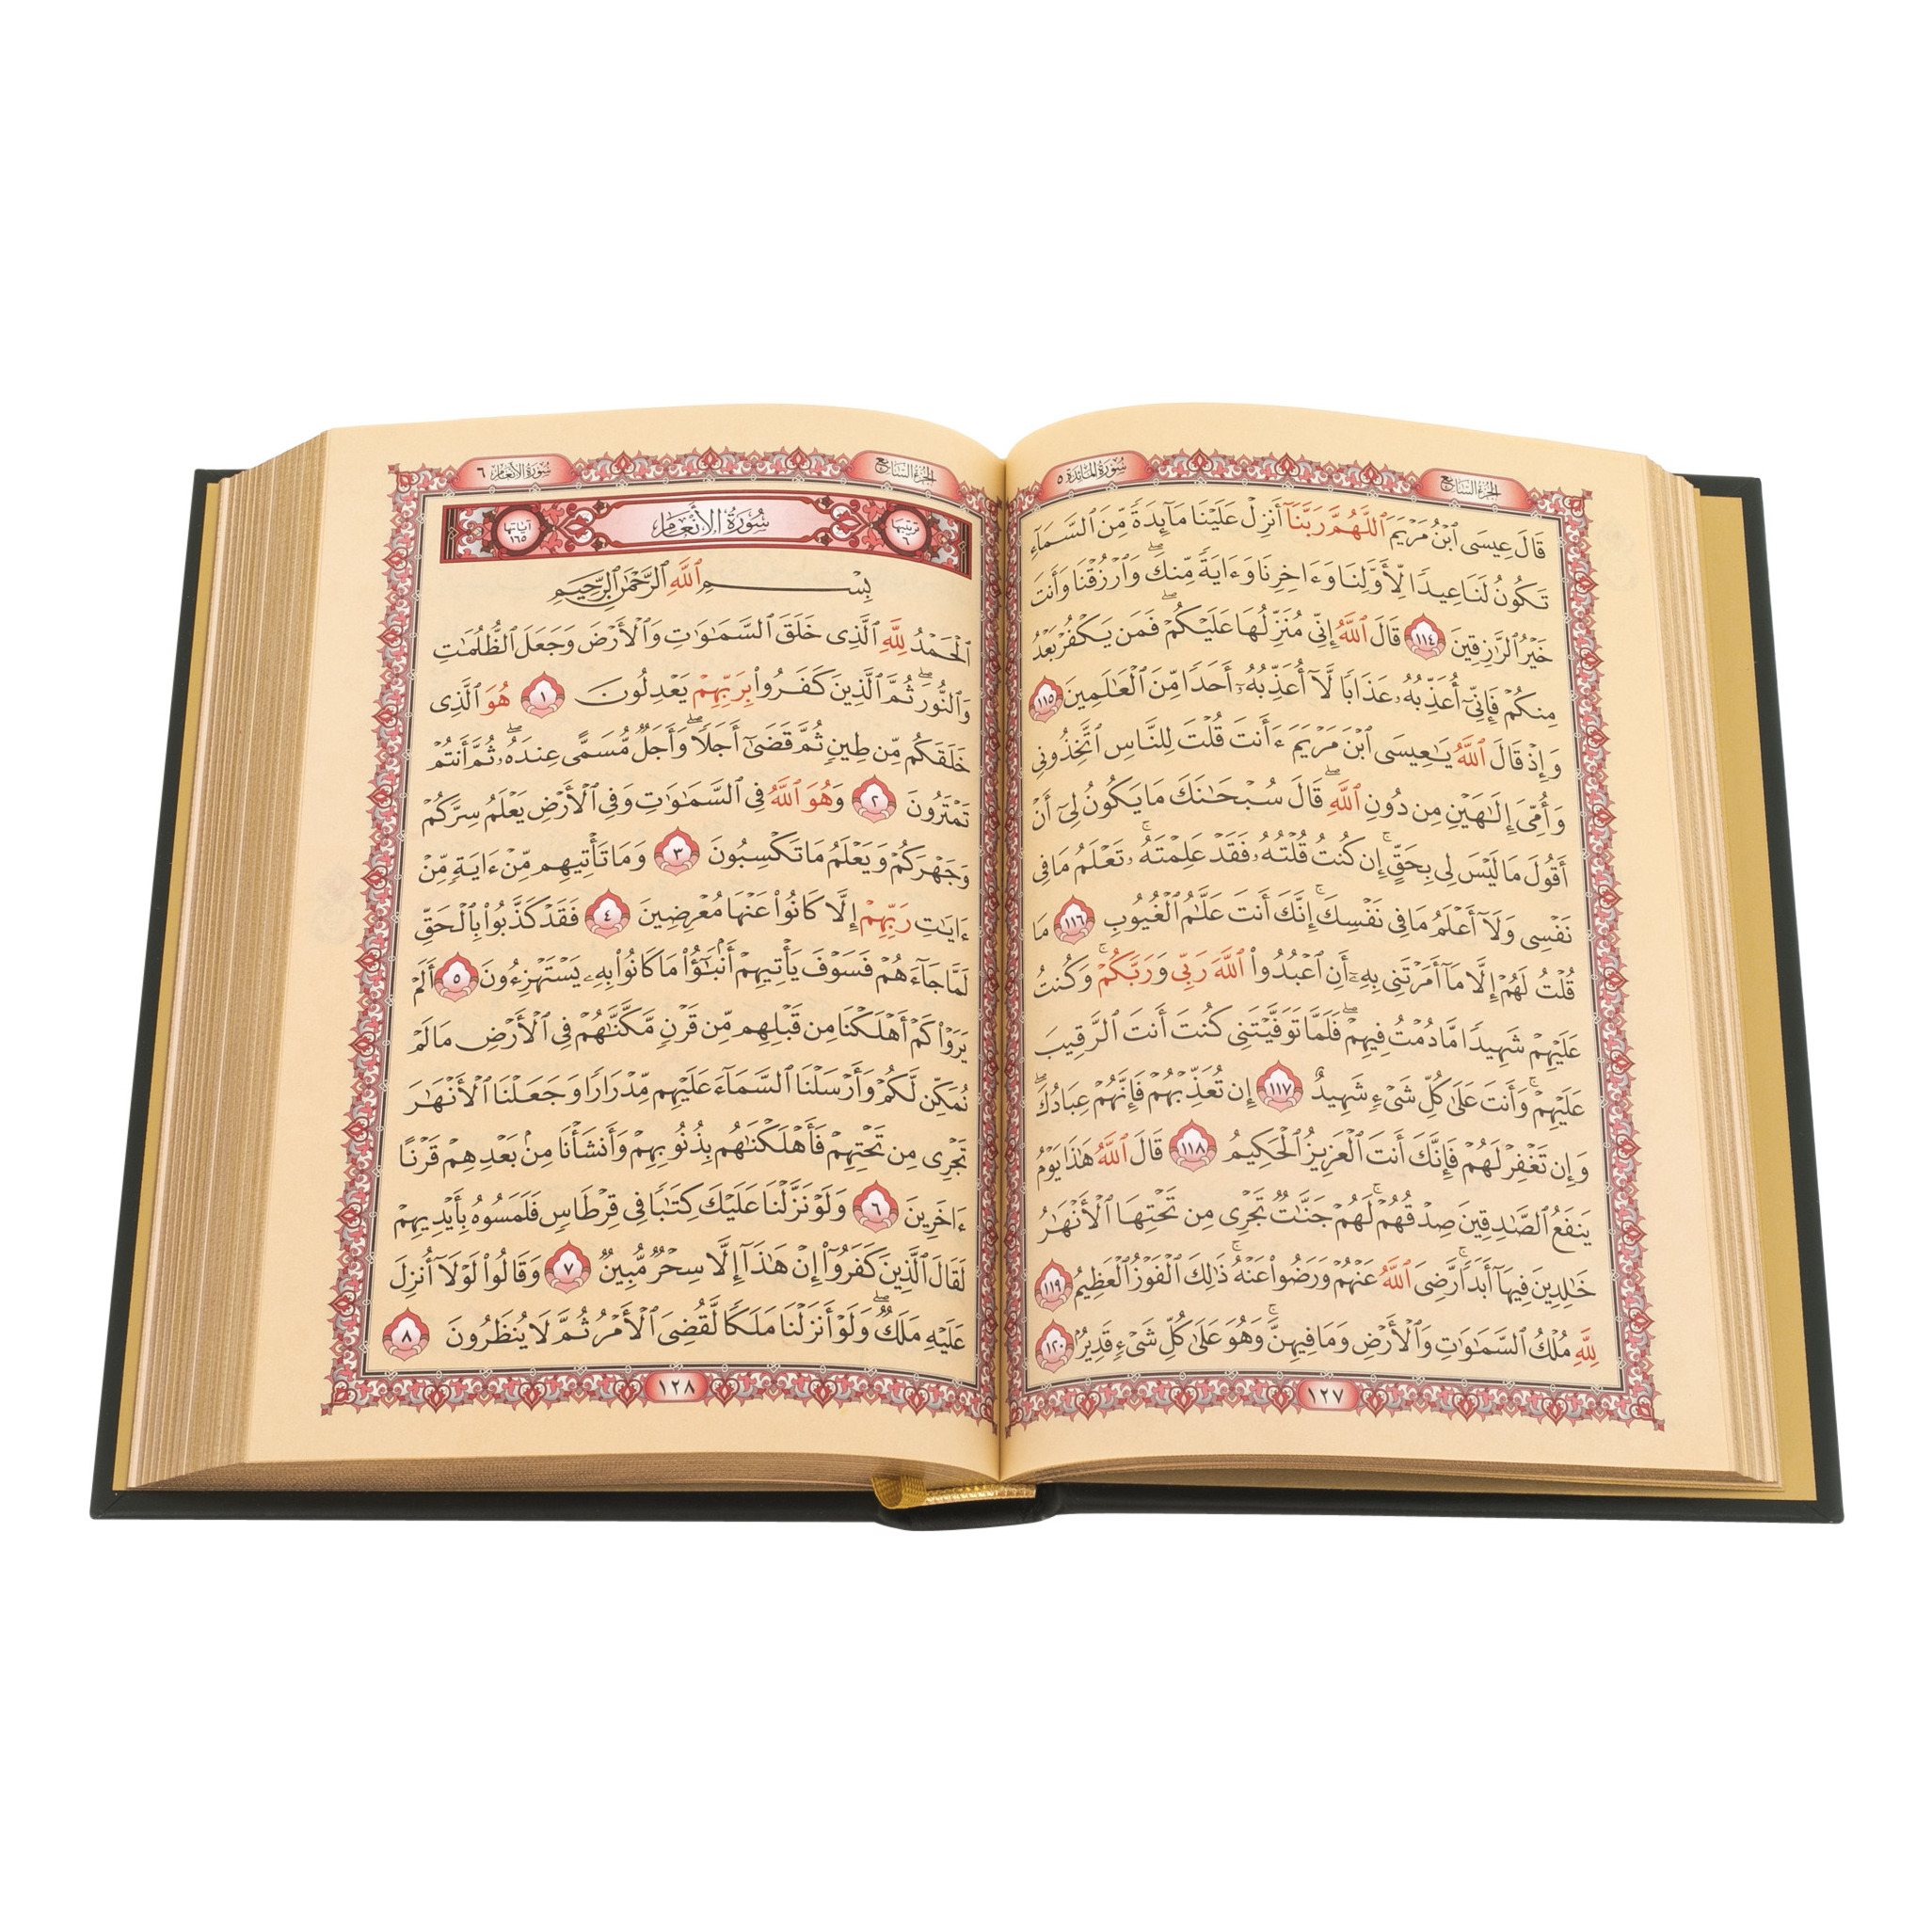 الجزء السابع
سورة المائدة ٥
قَالَ عِيسَى ٱبْنُ مَرْيَمَ ٱللَّهُمَّ رَبَّنَآ أَنزِلْ عَلَيْنَا مَآئِدَةً مِّنَ ٱلسَّمَآءِ
تَكُونُ لَنَا عِيدًا لِّأَوَّلِنَا وَءَاخِرِنَا وَءَايَةً مِّنكَ ۖ وَٱرْزُقْنَا وَأَنتَ
خَيْرُ ٱلرَّٰزِقِينَ ١١٤ قَالَ ٱللَّهُ إِنِّى مُنَزِّلُهَا عَلَيْكُمْ ۖ فَمَن يَكْفُرْ بَعْدُ
مِنكُمْ فَإِنِّىٓ أُعَذِّبُهُۥ عَذَابًا لَّآ أُعَذِّبُهُۥٓ أَحَدًا مِّنَ ٱلْعَٰلَمِينَ ١١٥
وَإِذْ قَالَ ٱللَّهُ يَٰعِيسَى ٱبْنَ مَرْيَمَ ءَأَنتَ قُلْتَ لِلنَّاسِ ٱتَّخِذُونِى
وَأُمِّىَ إِلَٰهَيْنِ مِن دُونِ ٱللَّهِ ۖ قَالَ سُبْحَٰنَكَ مَا يَكُونُ لِىٓ أَنْ
أَقُولَ مَا لَيْسَ لِى بِحَقٍّ ۚ إِن كُنتُ قُلْتُهُۥ فَقَدْ عَلِمْتَهُۥ ۚ تَعْلَمُ مَا فِى
نَفْسِى وَلَآ أَعْلَمُ مَا فِى نَفْسِكَ ۚ إِنَّكَ أَنتَ عَلَّٰمُ ٱلْغُيُوبِ ١١٦ مَا
قُلْتُ لَهُمْ إِلَّا مَآ أَمَرْتَنِى بِهِۦٓ أَنِ ٱعْبُدُوا۟ ٱللَّهَ رَبِّى وَرَبَّكُمْ ۚ وَكُنتُ
عَلَيْهِمْ شَهِيدًا مَّا دُمْتُ فِيهِمْ ۖ فَلَمَّا تَوَفَّيْتَنِى كُنتَ أَنتَ ٱلرَّقِيبَ
عَلَيْهِمْ ۚ وَأَنتَ عَلَىٰ كُلِّ شَىْءٍ شَهِيدٌ ١١٧ إِن تُعَذِّبْهُمْ فَإِنَّهُمْ عِبَادُكَ ۖ
وَإِن تَغْفِرْ لَهُمْ فَإِنَّكَ أَنتَ ٱلْعَزِيزُ ٱلْحَكِيمُ ١١٨ قَالَ ٱللَّهُ هَٰذَا يَوْمُ
يَنفَعُ ٱلصَّٰدِقِينَ صِدْقُهُمْ ۚ لَهُمْ جَنَّٰتٌ تَجْرِى مِن تَحْتِهَا ٱلْأَنْهَٰرُ
خَٰلِدِينَ فِيهَآ أَبَدًا ۚ رَّضِىَ ٱللَّهُ عَنْهُمْ وَرَضُوا۟ عَنْهُ ۚ ذَٰلِكَ ٱلْفَوْزُ ٱلْعَظِيمُ ١١٩
لِلَّهِ مُلْكُ ٱلسَّمَٰوَٰتِ وَٱلْأَرْضِ وَمَا فِيهِنَّ ۚ وَهُوَ عَلَىٰ كُلِّ شَىْءٍ قَدِيرٌۢ ١٢٠
١٢٧
الجزء السابع
سورة الأنعام ٦
ترتيبها ٦ سورة الأنعام آياتها ١٦٥
بِسْمِ ٱللَّهِ ٱلرَّحْمَٰنِ ٱلرَّحِيمِ
ٱلْحَمْدُ لِلَّهِ ٱلَّذِى خَلَقَ ٱلسَّمَٰوَٰتِ وَٱلْأَرْضَ وَجَعَلَ ٱلظُّلُمَٰتِ
وَٱلنُّورَ ۖ ثُمَّ ٱلَّذِينَ كَفَرُوا۟ بِرَبِّهِمْ يَعْدِلُونَ ١ هُوَ ٱلَّذِى
خَلَقَكُم مِّن طِينٍ ثُمَّ قَضَىٰٓ أَجَلًا ۖ وَأَجَلٌ مُّسَمًّى عِندَهُۥ ۖ ثُمَّ أَنتُمْ
تَمْتَرُونَ ٢ وَهُوَ ٱللَّهُ فِى ٱلسَّمَٰوَٰتِ وَفِى ٱلْأَرْضِ يَعْلَمُ سِرَّكُمْ
وَجَهْرَكُمْ وَيَعْلَمُ مَا تَكْسِبُونَ ٣ وَمَا تَأْتِيهِم مِّنْ ءَايَةٍ مِّنْ
ءَايَٰتِ رَبِّهِمْ إِلَّا كَانُوا۟ عَنْهَا مُعْرِضِينَ ٤ فَقَدْ كَذَّبُوا۟ بِٱلْحَقِّ
لَمَّا جَآءَهُمْ فَسَوْفَ يَأْتِيهِمْ أَنۢبَٰٓؤُا۟ مَا كَانُوا۟ بِهِۦ يَسْتَهْزِءُونَ ٥ أَلَمْ
يَرَوْا۟ كَمْ أَهْلَكْنَا مِن قَبْلِهِم مِّن قَرْنٍ مَّكَّنَّٰهُمْ فِى ٱلْأَرْضِ مَا لَمْ
نُمَكِّن لَّكُمْ وَأَرْسَلْنَا ٱلسَّمَآءَ عَلَيْهِم مِّدْرَارًا وَجَعَلْنَا ٱلْأَنْهَٰرَ
تَجْرِى مِن تَحْتِهِمْ فَأَهْلَكْنَٰهُم بِذُنُوبِهِمْ وَأَنشَأْنَا مِنۢ بَعْدِهِمْ قَرْنًا
ءَاخَرِينَ ٦ وَلَوْ نَزَّلْنَا عَلَيْكَ كِتَٰبًا فِى قِرْطَاسٍ فَلَمَسُوهُ بِأَيْدِيهِمْ
لَقَالَ ٱلَّذِينَ كَفَرُوٓا۟ إِنْ هَٰذَآ إِلَّا سِحْرٌ مُّبِينٌ ٧ وَقَالُوا۟ لَوْلَآ أُنزِلَ
عَلَيْهِ مَلَكٌ ۖ وَلَوْ أَنزَلْنَا مَلَكًا لَّقُضِىَ ٱلْأَمْرُ ثُمَّ لَا يُنظَرُونَ ٨
١٢٨